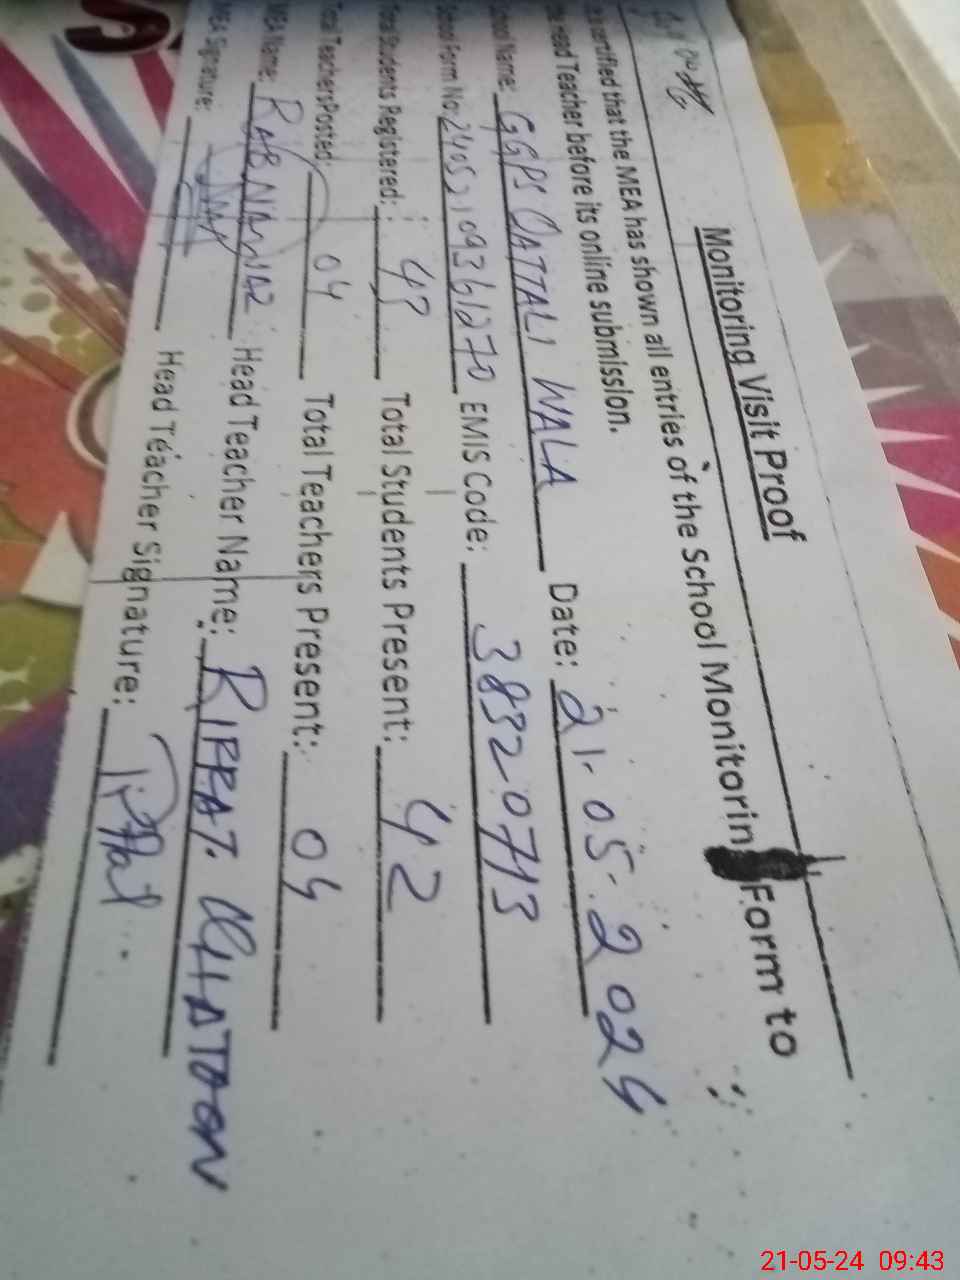 Monitoring Visit Proof
certified that the MEA has shown all entries of the School Monitorin Form to
Head Teacher before its online submission.
School Name: GGPS QATTALI WALA Date: 21-05-2024
School Form No: EMIS Code: 38320713
Total Students Registered: Total Students Present: 42
Total Teachers Posted: 04 Total Teachers Present: 04
MEA Name: RAB NAWAZ Head Teacher Name: RIFFAT KHATOON
MEA Signature: Head Teacher Signature: Riffat
21-05-24 09:43